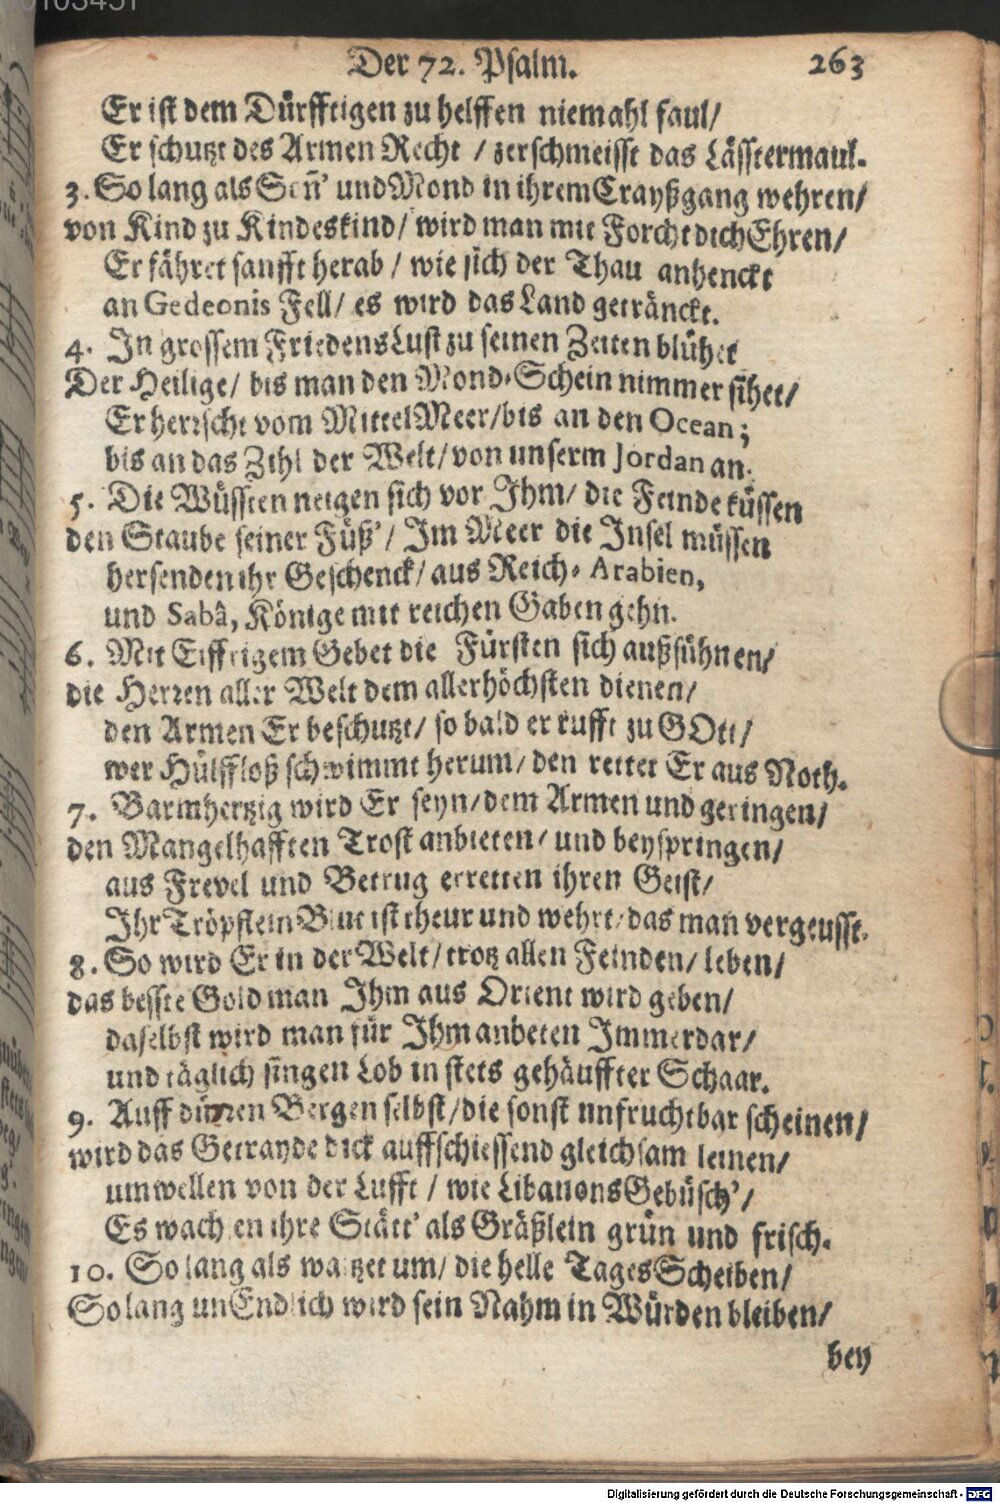 0103451
Der 72. Psalm. 263
Er ist dem Dürfftigen zu helffen niemahl faul/
Er schutzt des Armen Recht / zerschmeisst das Lässtermaul.
3. So lang als Soñ' und Mond in ihrem Crayßgang wehren/
von Kind zu Kindeskind/ wird man mit Forcht dich Ehren/
Er fähret sanfft herab / wie sich der Thau anhenckt
an Gedeonis Fell/ es wird das Land getränckt.
4. In grossem FriedensLust zu seinen Zeiten blühet
Der Heilige/ bis man den Mond-Schein nimmer sihet/
Er herrscht vom MittelMeer/ bis an den Ocean;
bis an das Zihl der Welt/ von unserm Jordan an.
5. Die Wüssten neigen sich vor Ihm/ die Feinde küssen
den Staube seiner Füß'/ Im Meer die Insel müssen
hersenden ihr Geschenck/ aus Reich-Arabien,
und Sabâ, Könige mit reichen Gaben gehn.
6. Mit Eiffrigem Gebet die Fürsten sich außsühnen/
die Herren aller Welt dem allerhöchsten dienen/
den Armen Er beschutzt/ so bald er rufft zu GOtt/
wer Hülffloß schwimmt herum/ den rettet Er aus Noth.
7. Barmhertzig wird Er seyn/ dem Armen und geringen/
den Mangelhafften Trost anbieten/ und beyspringen/
aus Frevel und Betrug erretten ihren Geist/
Ihr Tröpflein Blut ist theur und wehrt/ das man vergeusst.
8. So wird Er in der Welt/ trotz allen Feinden/ leben/
das besste Gold man Ihm aus Orient wird geben/
daselbst wird man für Ihm anbeten Immerdar/
und täglich singen Lob in stets gehäuffter Schaar.
9. Auff dürren Bergen selbst/ die sonst unfruchtbar scheinen/
wird das Getrayde dick auffschiessend gleichsam leinen/
umwellen von der Lufft / wie Libanons Gebüsch'/
Es wachsen ihre Stätt' als Gräßlein grün und frisch.
10. So lang als waltzet um/ die helle TagesScheiben/
So lang unEndlich wird sein Nahm in Würden bleiben/
bey
Digitalisierung gefördert durch die Deutsche Forschungsgemeinschaft - DFG